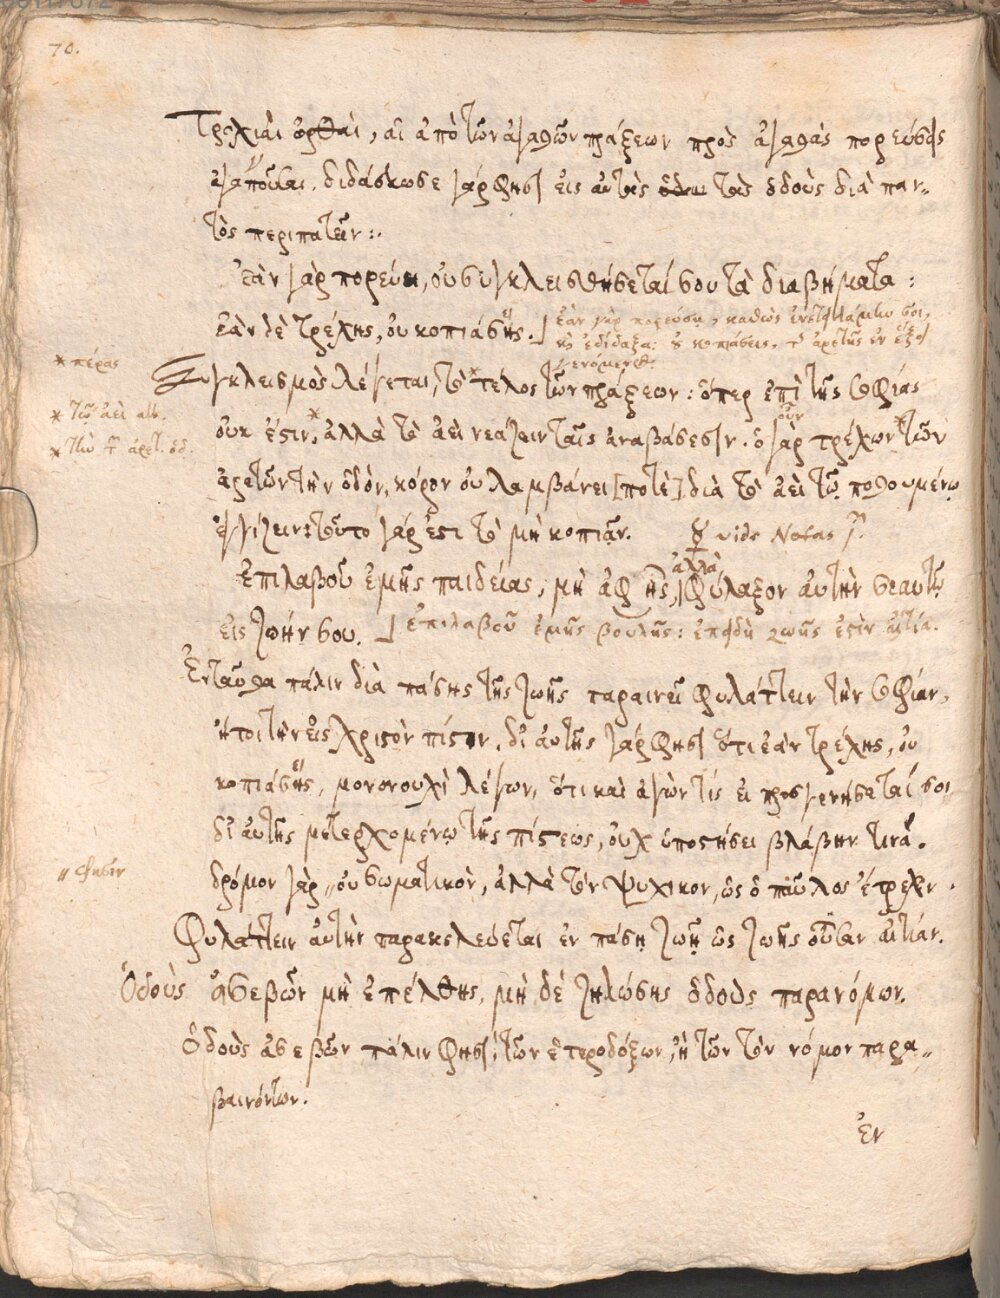 70.
Τροχιαὶ ὀρθαὶ, αἱ ἀπὸ τῶν ἀγαθῶν πράξεων πρὸς ἀγαθὰς πορεύσεις
ἄγουσαι. διδάσκωσε γάρ φησι εἰς αὐτὰς τὰς ὁδοὺς διὰ παν-
τὸς περιπατεῖν:
Ἐὰν γὰρ πορεύῃ, οὐ συγκλεισθήσεταί σου τὰ διαβήματα:
ἐὰν δὲ τρέχῃς, οὐ κοπιάσῃς.] ἐὰν γὰρ πορεύσῃ, καθὼς ἐνετειλάμην σοι,
κ ἐδίδαξα: οὐ κοπιάσεις, τ ἀρετῆς ἐν ἕξει
γενόμενος.
* πέρας
Συγκλεισμὸς λέγεται, τὸ * τέλος τῶν πράξεων: ὅπερ ἐπὶ τῆς σοφίας
* Τῷ ἀεὶ
οὐκ ἔστιν,* ἀλλὰ τὸ ἀεὶ νεάζειν ταῖς ἀναβάσεσιν. ὁ γὰρ οὖν τρέχων *τῶν
* τὴν τ ἀρετ. ὁδ.
ἀρετῶν τὴν ὁδὸν, κόρον οὐ λαμβάνει [ποτὲ] διὰ τὸ ἀεὶ τῷ ποθουμένῳ
ἐγγίζειν: τοῦτο γάρ ἐστι τὸ μὴ κοπιᾷν. vide Notas
Ἐπιλαβοῦ ἐμῆς παιδείας, μὴ ἀφῇς, ἀλλὰ φύλαξον αὐτὴν σεαυτῷ
εἰς ζωήν σου.] ἐπιλαβοῦ ἐμῆς βουλῆς: ἐπειδὴ ζωῆς ἐστὶν αἰτία.
Ἐνταῦθα πάλιν διὰ πάσης τῆς ζωῆς παραινεῖ φυλάττειν τὴν σοφίαν,
ἤτοι τὴν εἰς Χριστὸν πίστιν. δι' αὐτῆς γάρ φησι ὅτι ἐὰν τρέχῃς, οὐ
κοπιάσῃς, μονονουχὶ λέγων, ὅτι καὶ ἀγών τις εἰ προσγενήσεταί σοι
δι' αὐτῆς μετερχομένῳ τῆς πίστεως, οὐχ ὑποστήσει βλάβην τινά.
〃 φησίν
δρόμον γὰρ〃 οὐ σωματικὸν, ἀλλὰ τὸν ψυχικον, ὡς ὁ παῦλος ἔτρεχεν.
Φυλάττειν αὐτὴν παρακελεύεται ἐν πάσῃ ζωῇ ὡς ζωῆς οὖσαν αἰτίαν.
Ὁδοὺς ἀσεβῶν μὴ ἐπέλθῃς, μὴ δὲ ζηλώσῃς ὁδοὺς παρανόμων.
Ὁδοὺς ἀσεβῶν πάλιν φησὶ, τῶν ἑτεροδόξων, ἢ τῶν τὸν νόμον παρα〃
βαινόντων.
ἐν